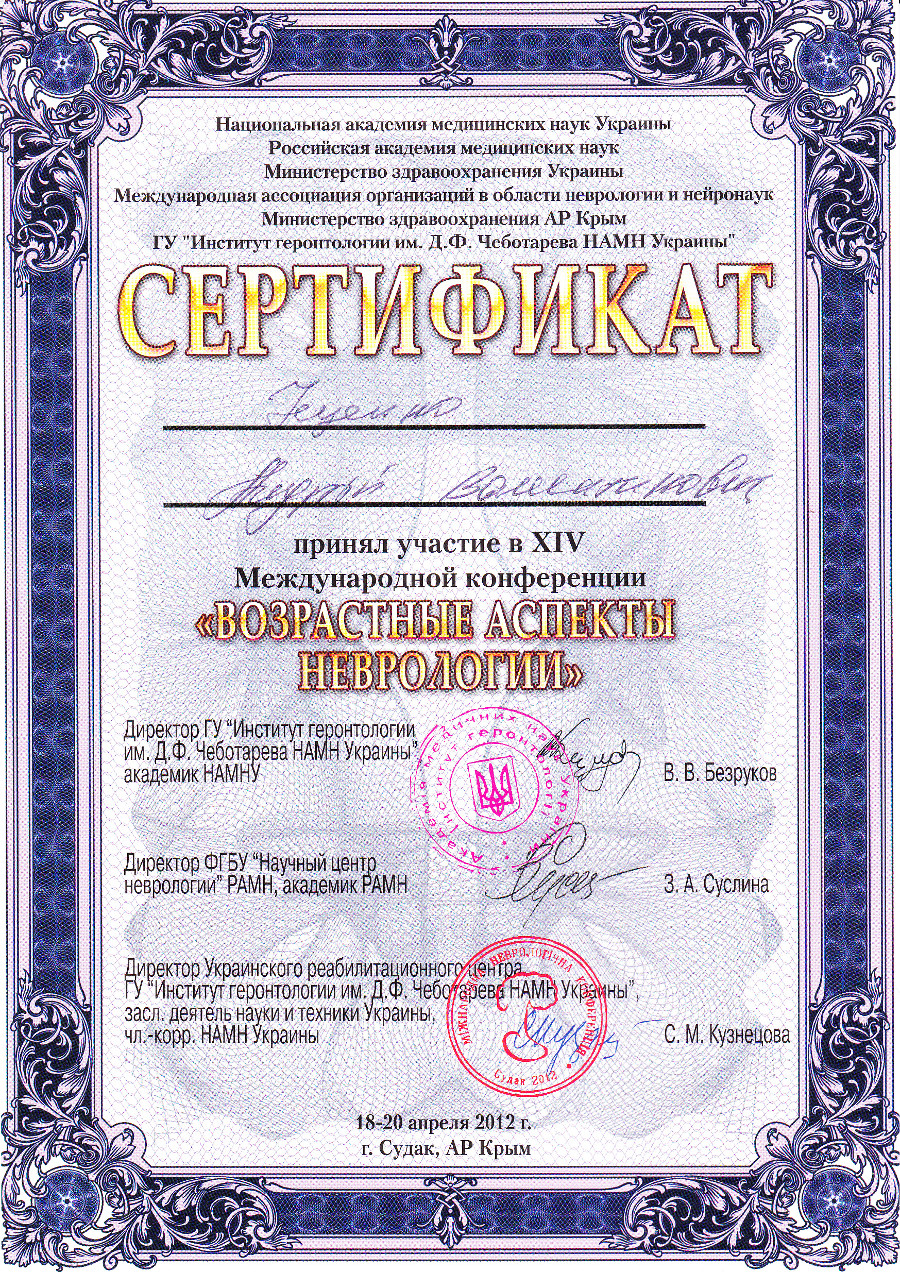 Национальная академия медицинских наук Украины
Российская академия медицинских наук
Министерство здравоохранения Украины
Международная ассоциация организаций в области неврологии и нейронаук
Министерство здравоохранения АР Крым
ГУ "Институт геронтологии им. Д.Ф. Чеботарева НАМН Украины"
СЕРТИФИКАТ
принял участие в XIV
Международной конференции
«ВОЗРАСТНЫЕ АСПЕКТЫ
НЕВРОЛОГИИ»
Директор ГУ “Институт геронтологии
им. Д.Ф. Чеботарева НАМН Украины”,
академик НАМНУ
В. В. Безруков
Академія медичних наук України
Інститут геронтології
Директор ФГБУ “Научный центр
неврологии” РАМН, академик РАМН
З. А. Суслина
Директор Украинского реабилитационного центра
ГУ “Институт геронтологии им. Д.Ф. Чеботарева НАМН Украины”,
засл. деятель науки и техники Украины,
чл.-корр. НАМН Украины
С. М. Кузнецова
МІЖНАРОДНА НЕВРОЛОГІЧНА КОНФЕРЕНЦІЯ
Судак 2012
18-20 апреля 2012 г.
г. Судак, АР Крым